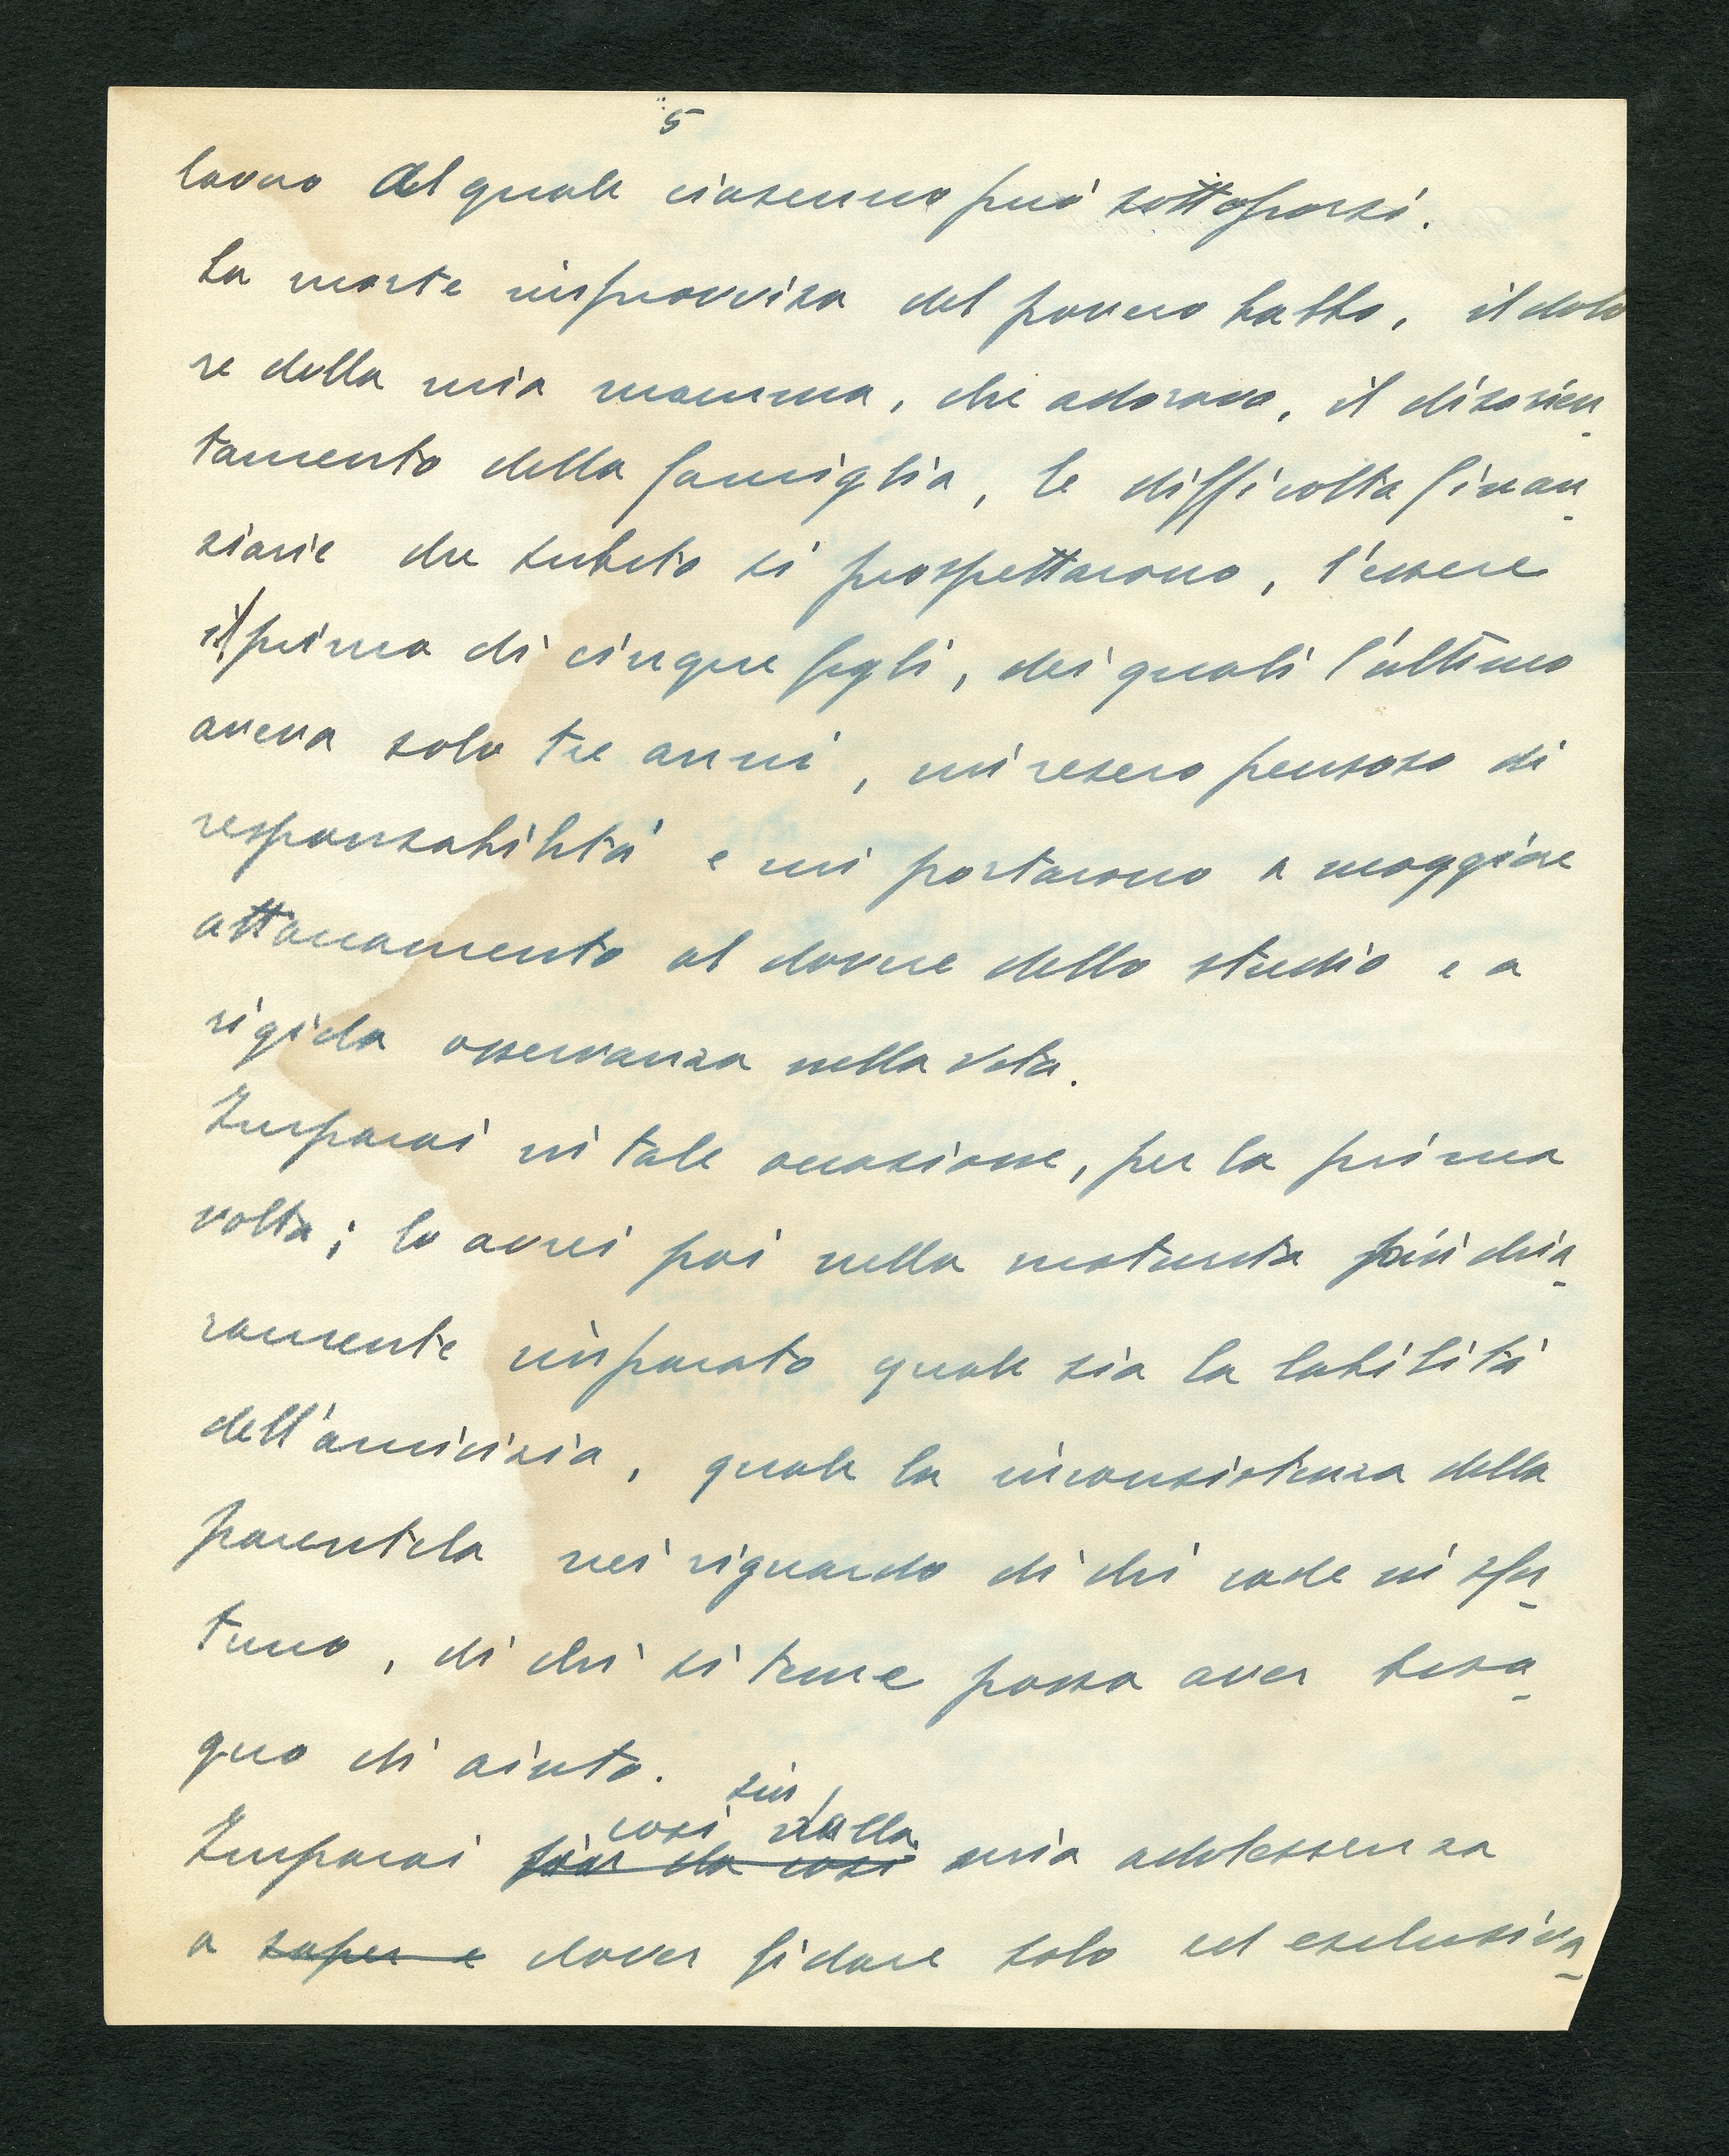 5
lavoro al quale ciascuno può sottoporsi.
La morte improvvisa del povero babbo, il dolo
re della mia mamma, che adoravo, il disorien-
tamento della famiglia, le difficolta finan-
ziarie che subito si prospettarono, l'essere
il primo di cinque figli, dei quali l'ultimo
aveva solo tre anni, mi resero pensoso di
responsabilità e mi portarono a maggiore
attaccamento al dovere dello studio e a
rigida osservanza nella vita.
Imparai in tale occasione, per la prima
volta; lo avrei poi nella maturità più chia-
ramente imparato quale sia la labilità
dell'amicizia, quale la inconsistenza della
parentela nei riguardo di chi cade in sfor-
tuna, di chi si teme possa aver biso-
gno di aiuto.
sin
così dalla
Imparai sin da così mia adolessenza
a saper e dover fidare solo ed esclusiva-